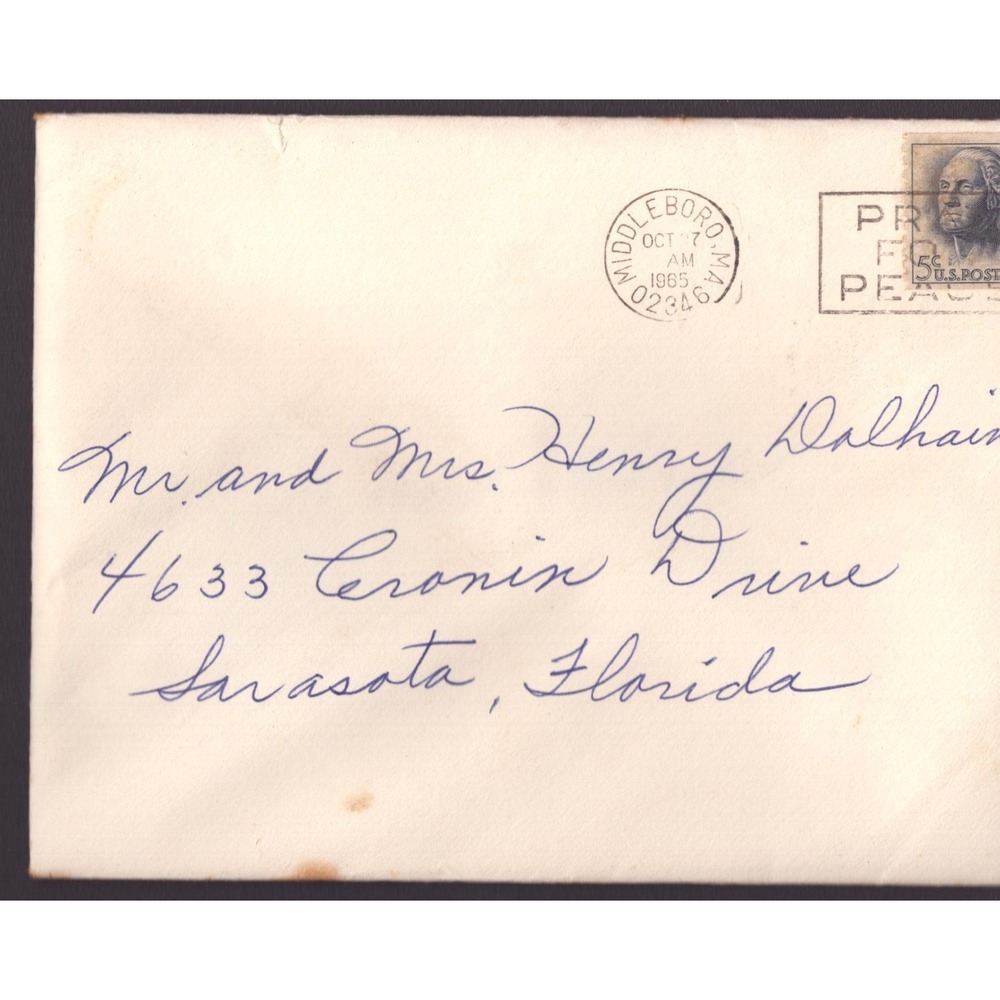 MIDDLEBORO, MA
OCT 7
AM
1965
02346
PRA
FO
PEACE
5c
U.S. POST
Mr. and Mrs. Henry Dalhain
4633 Cronin Drive
Sarasota, Florida